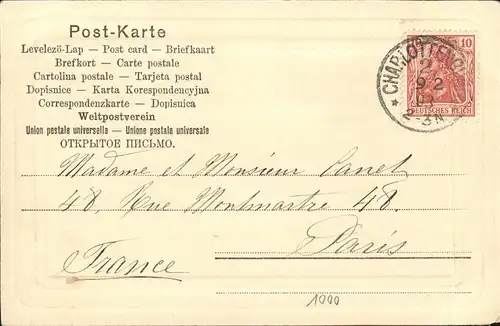 Post-Karte
Levelező-Lap — Post card — Briefkaart
Brefkort — Carte postale
Cartolina postale — Tarjeta postal
Dopisnice — Karta Korespondencyjna
Correspondenzkarte — Dopisnica
Weltpostverein
Union postale universelle — Unione postale universale
ОТКРЫТОЕ ПИСЬМО.
10
DEUTSCHES REICH
9 2
2-3N
Madame et Monsieur Canet
48, Rue Montmartre 48.
Paris
France
1000